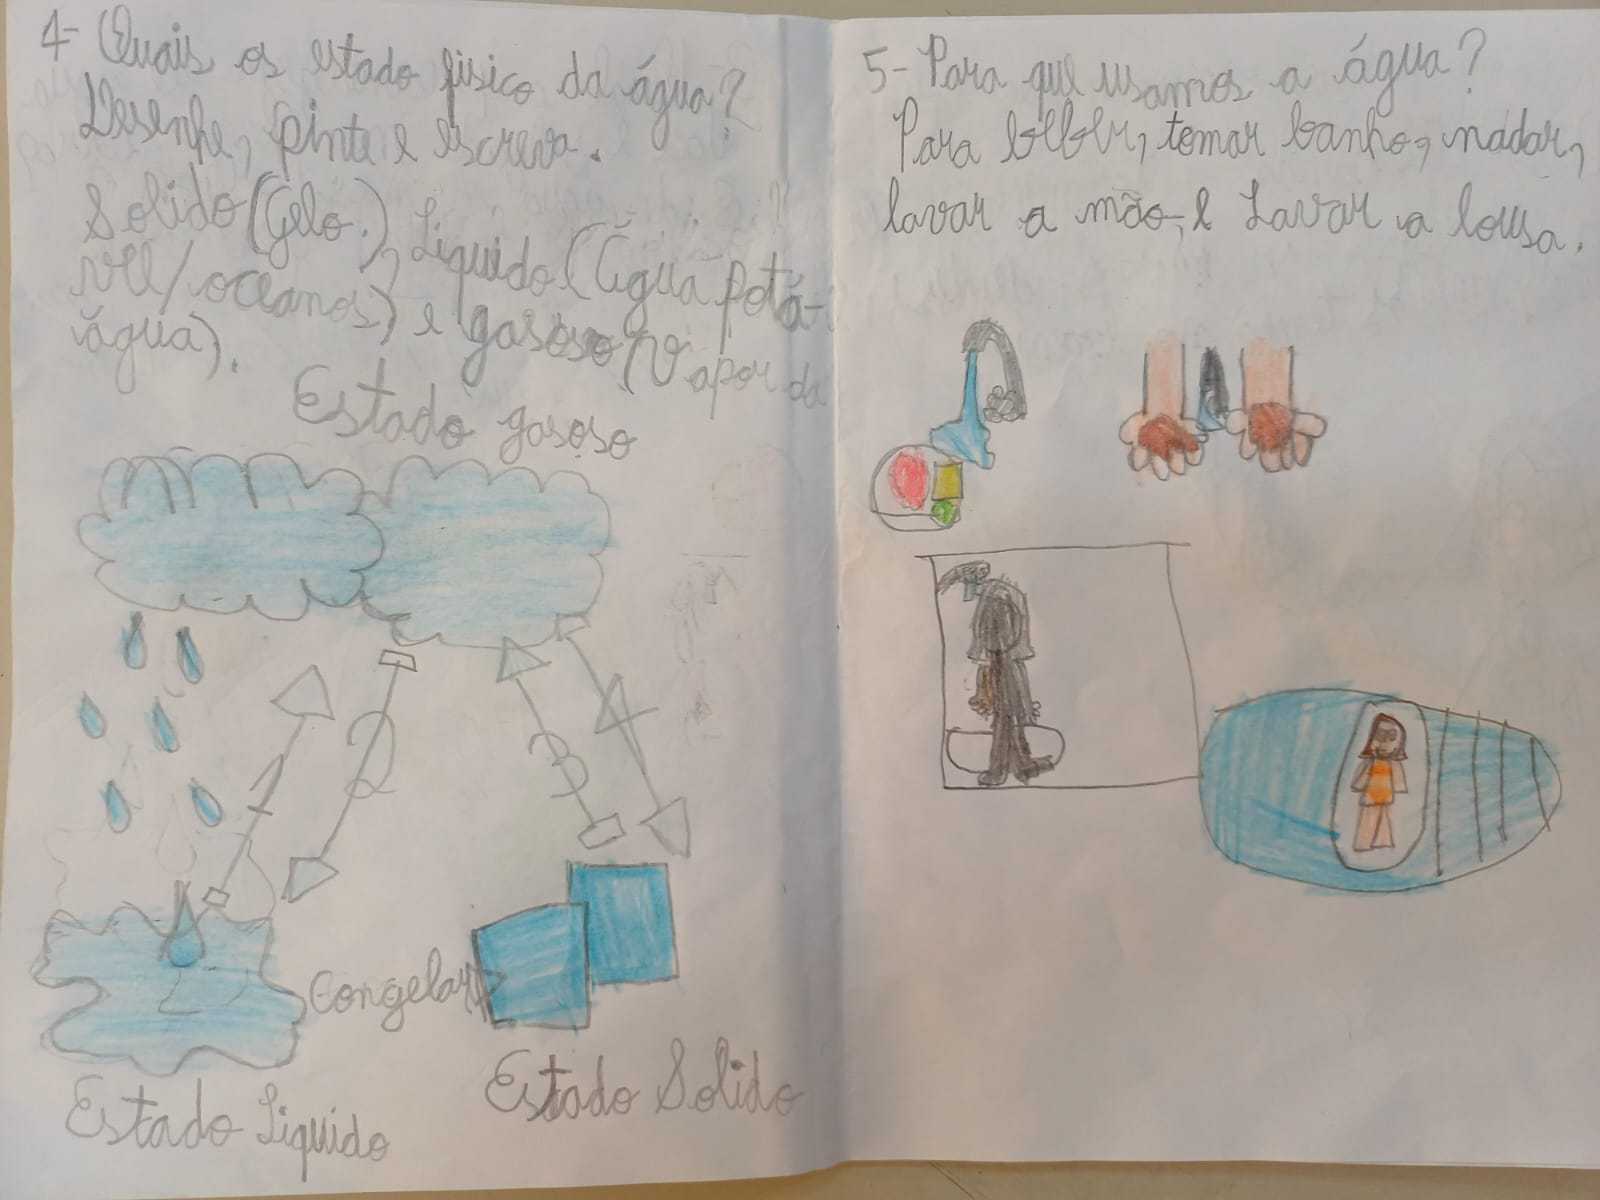 4- Quais os estado fisico da água?
Desenhe, pinte e escreva.
Solido (Gelo.), Liquido (Água potá-
vel/oceanos) e gasoso (Vapor da
água).
Estado gasoso
1 2 3 4
Congelar
Estado Solido
Estado Liquido
5- Para que usamos a água?
Para beber, temar banho, nadar,
lavar a mão, e Lavar a lousa.